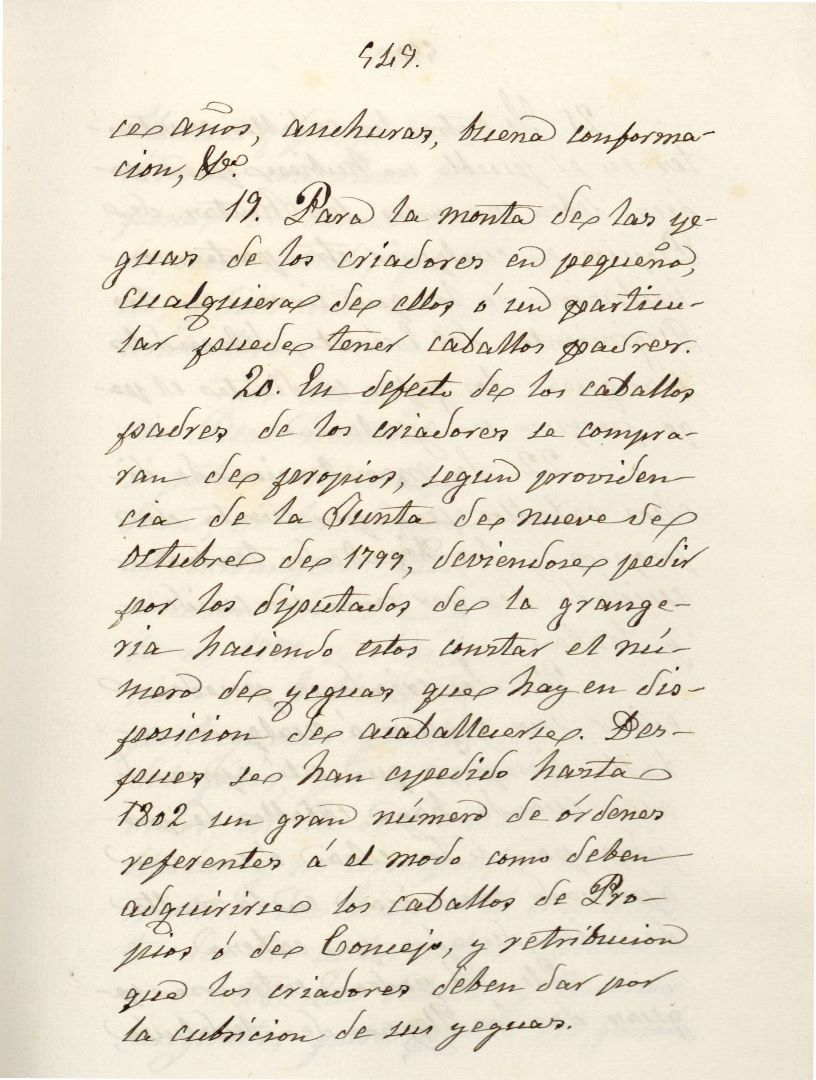 549.
ce años, anchuras, buena conforma-
cion, &ª.
19. Para la monta de las ye-
guas de los criadores en pequeño,
cualquiera de ellos ó un particu-
lar puede tener caballos padres.
20. En defecto de los caballos
padres de los criadores se compra-
ran de propios, segun providen
cia de la Junta de nueve de
octubre de 1799, deviendose pedir
por los diputados de la grange-
ria haciendo estos constar el nú-
mero de yeguas que hay en dis-
posicion de acaballarse. Des-
pues se han espedido hasta
1802 un gran número de órdenes
referentes á el modo como deben
adquirirse los caballos de Pro-
pios ó de Concejo, y retribucion
que los criadores deben dar por
la cubricion de sus yeguas.